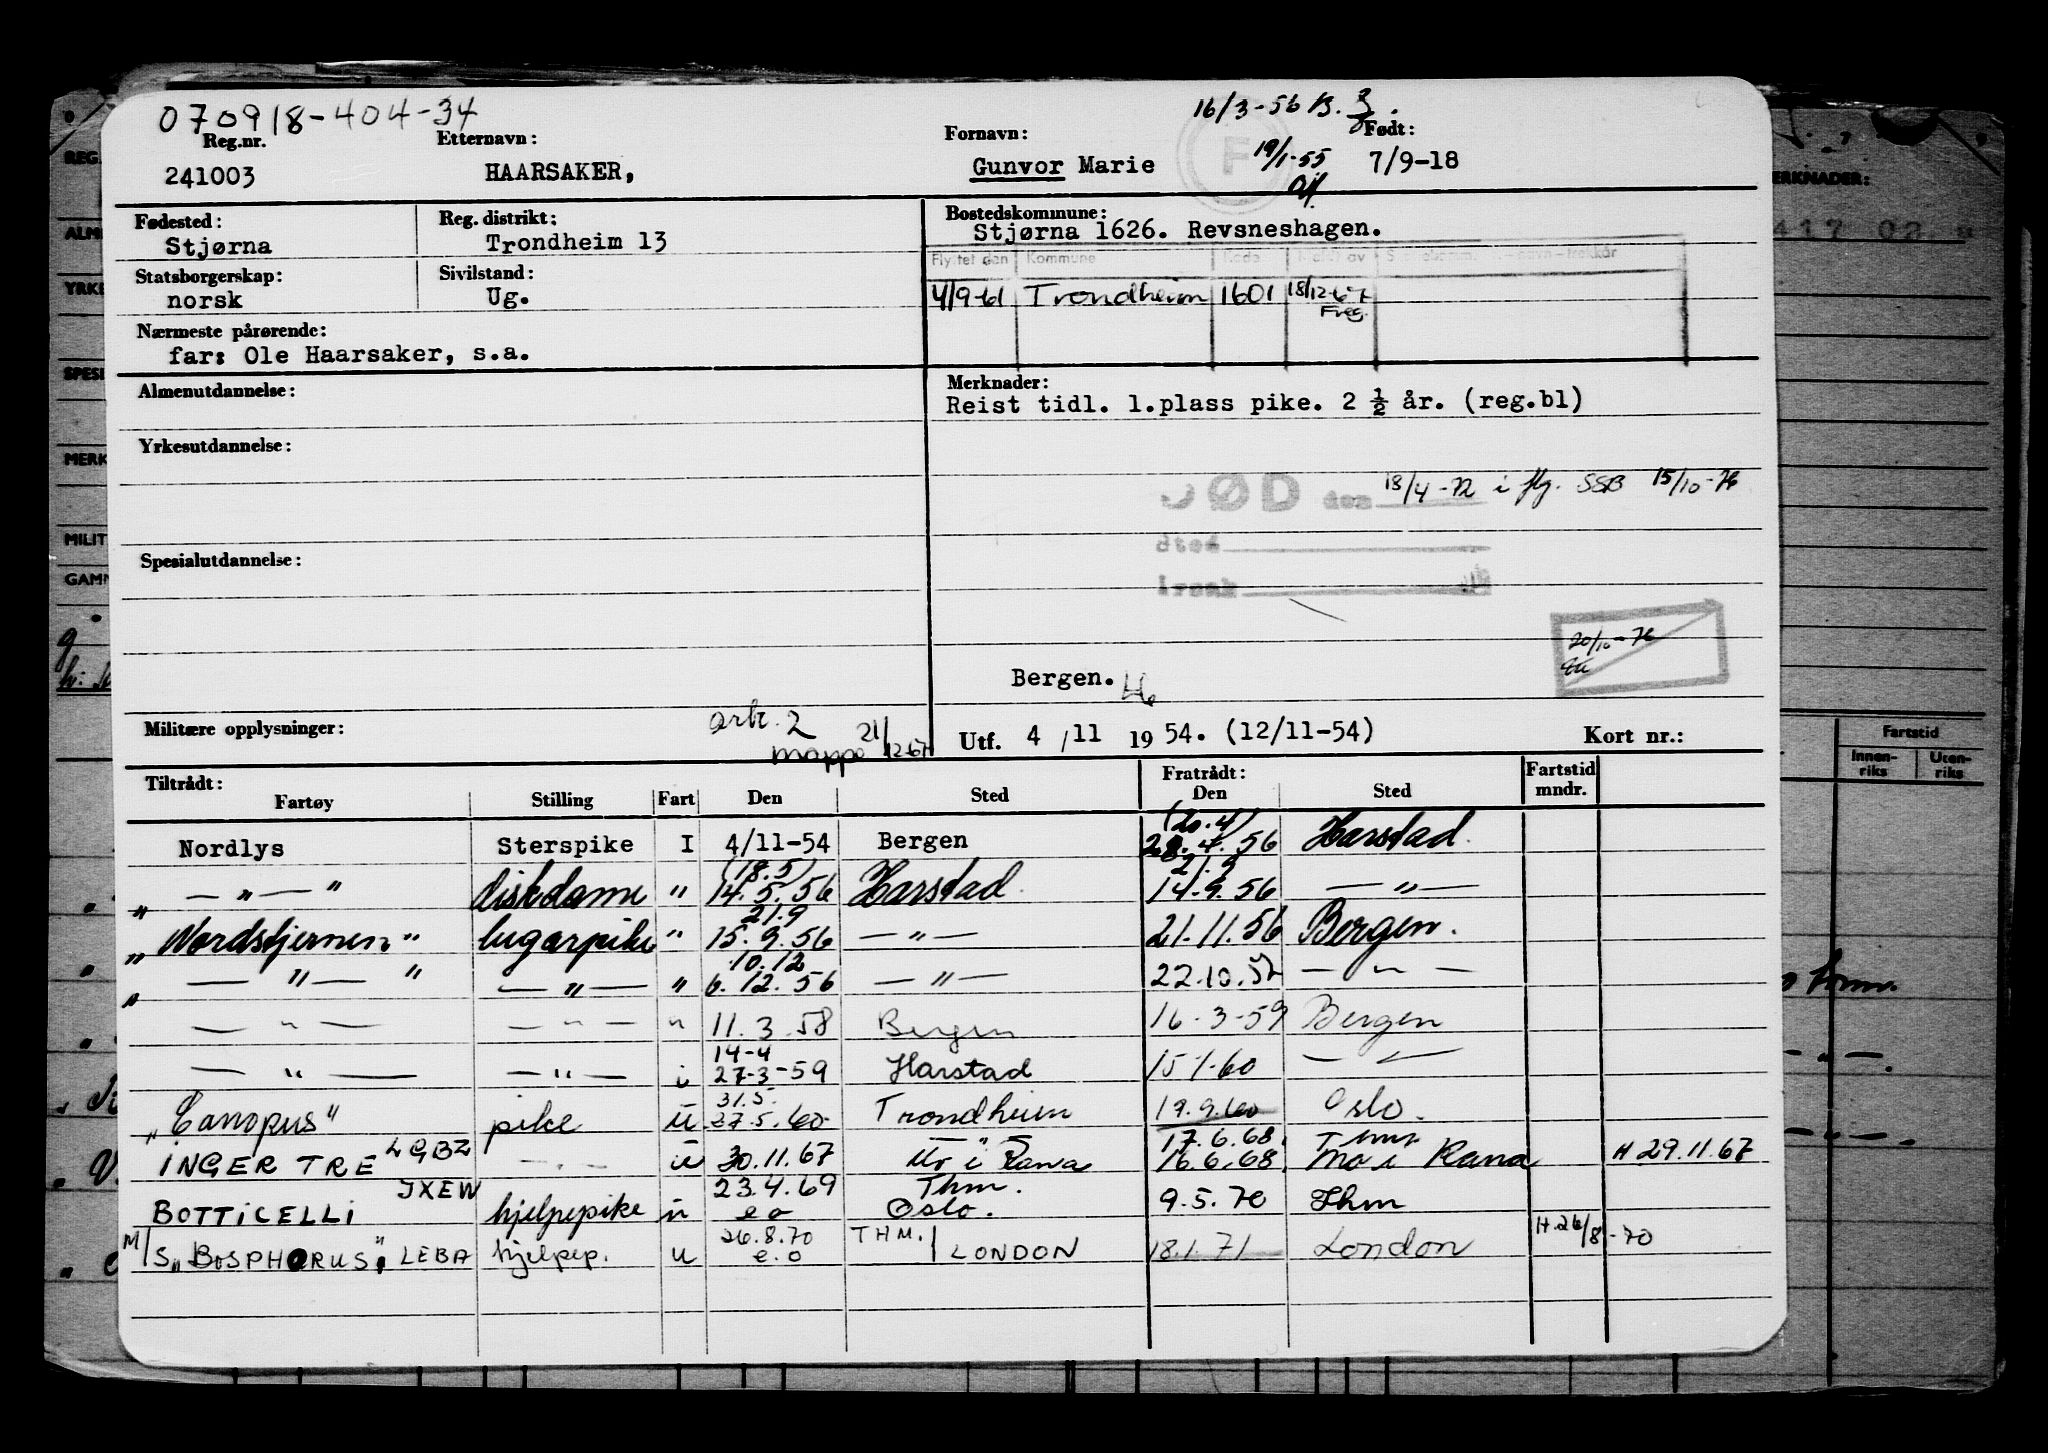 070918-404-34
16/3-56 B.
Reg.nr. Etternavn: Fornavn: Født:
241003 HAARSAKER, Gunvor Marie 19/1-55 7/9-18
Fødested: Reg. distrikt: Bostedskommune:
Stjørna Trondheim 13 Stjørna 1626. Revsneshagen.
Statsborgerskap: Sivilstand: Flyttet den Kommune Kode Meldt av
norsk Ug. 4/9-61 Trondheim 1601 18/12-67 Freg.
Nærmeste pårørende:
far: Ole Haarsaker, s.a.
Almenutdannelse: Merknader:
Reist tidl. 1.plass pike. 2 ½ år. (reg.bl)
Yrkesutdannelse:
DØD den 18/4-72 i flg. SSB 15/10-76
Spesialutdannelse:
20/10-76
Bergen.
Militære opplysninger: ark. 2 mappe 21/12 67 Utf. 4/11 1954. (12/11-54) Kort nr.:
Tiltrådt: Fratrådt: Fartstid
Fartøy Stilling Fart Den Sted Den Sted mndr.
(20.4)
Nordlys Sterspike I 4/11-54 Bergen 28.4.56 Harstad.
(18.5) 21.9
„ — " — " diskdame " 14.5.56 Harstad. 14.9.56 — " —
21.9
„Nordstjernen" lugarpike " 15.9.56 — " — 21.11.56 Bergen.
10.12
„ — " — " — " — " 6.12.56 — " — 22.10.57 — " —
— " — — " — " 11.3.58 Bergen 16-3-59 Bergen
14-4
— " — — " — i 27-3-59 Harstad 15.1.60 — " —
31.5.
„Canopus" pike u 27.5.60 Trondheim 19.9.60 Oslo.
17.6.68. Thm.
INGER TRE LGBZ — " — u 30.11.67 Mo i Rana 16.6.68. Mo i Rana H 29.11.67
23.4.69 Thm.
BOTTICELLI JXEW hjelpepike u e o Oslo. 9.5.70 Thm
26.8.70 THM. H.26/8-70
M/S „BOSPHORUS", LEBA hjelpep. u e.o / LONDON 18.1.71 London
REG.
ALM
YRKE
SPESI
MERK
MILIT
GAMM
MERKNADER:
417 02
Fartstid
Innen-riks Uten-riks